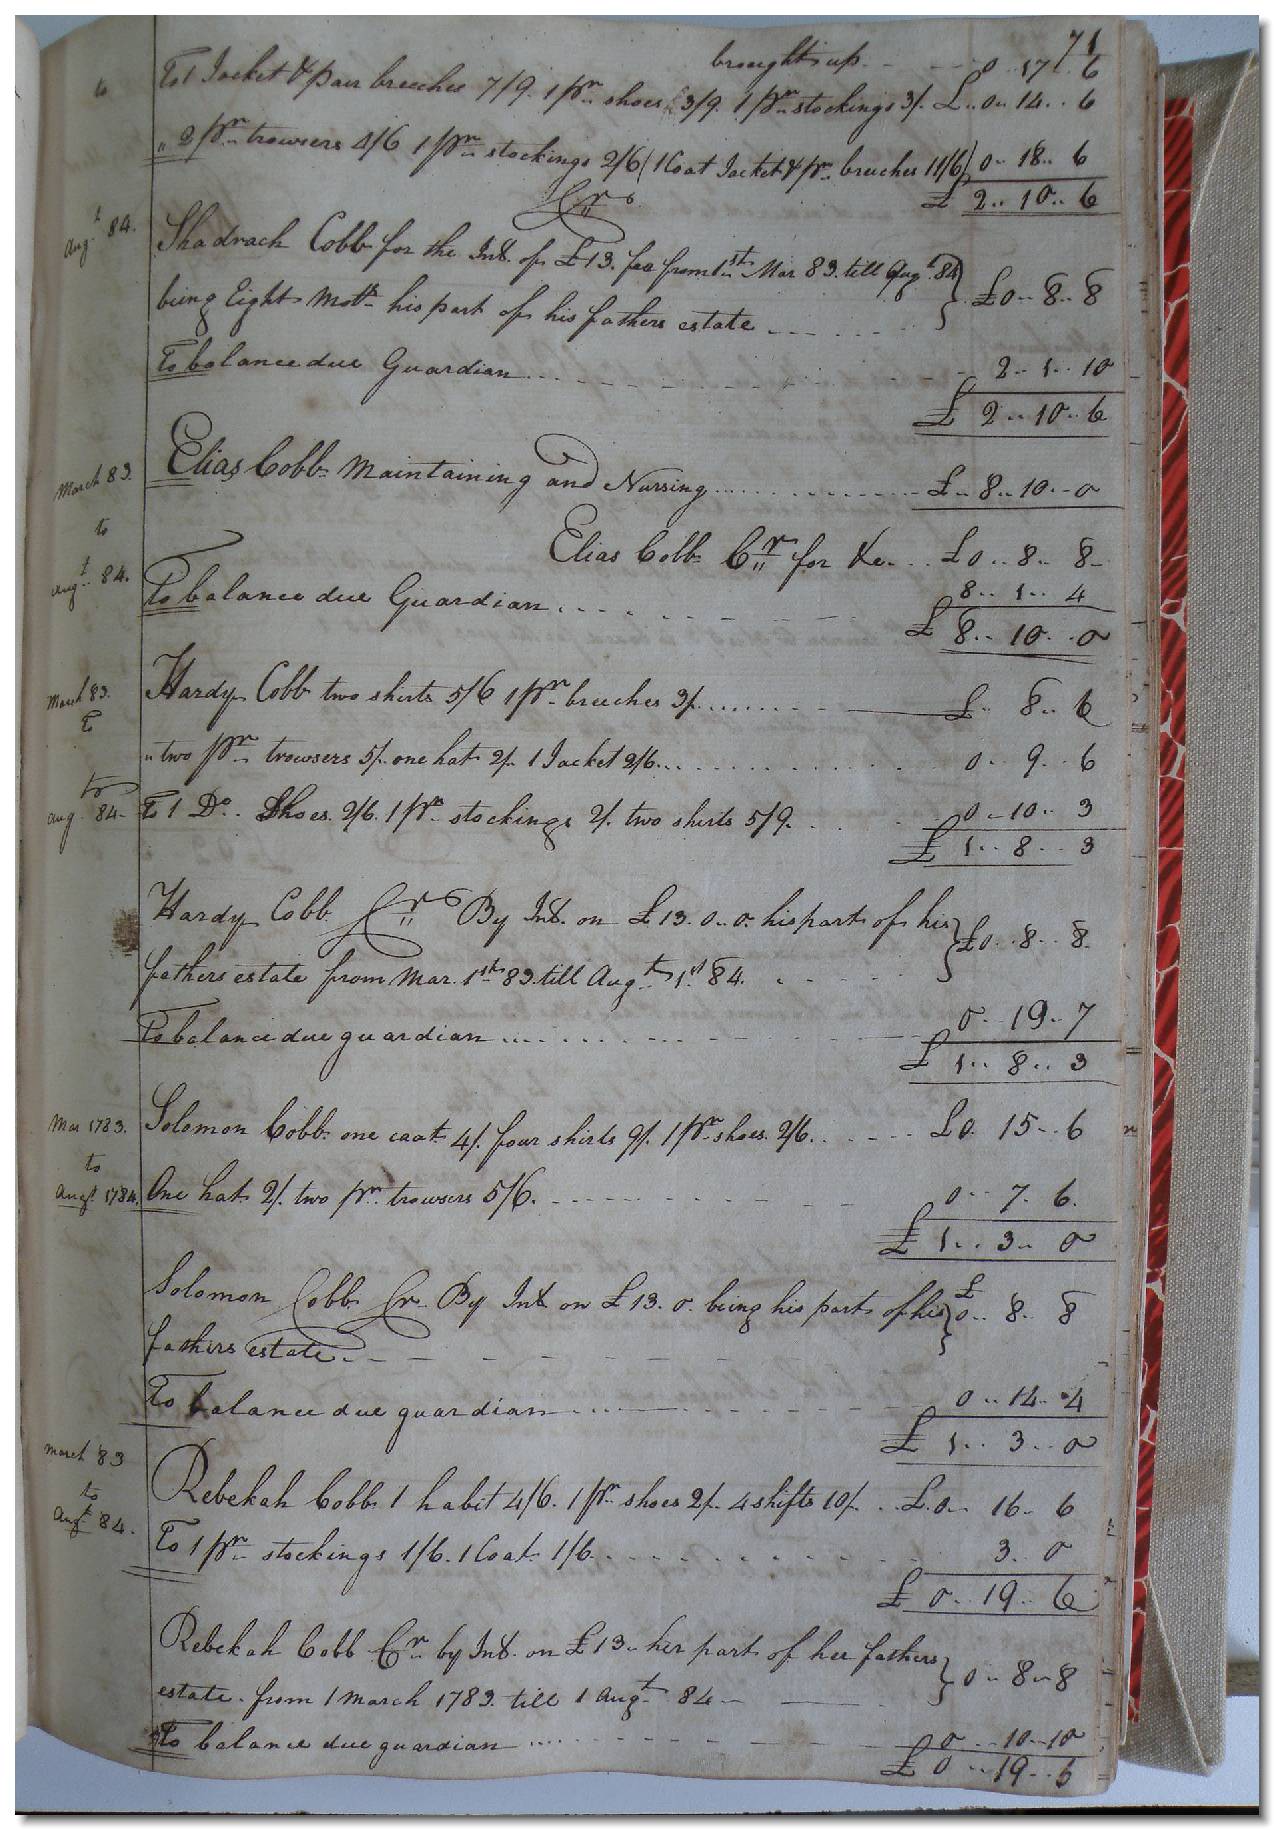 71
brought up. - - - 0 .. 17 .. 6
to
To 1 Jacket & pair breeches 7/9. 1 pr. shoes 3/9. 1 pr. stockings 3/. £ .. 0 .. 14 .. 6
" 2 pr. trowsers 4/6 1 pr. stockings 2/6 (1 Coat Jacket & pr. breeches 11/6) 0 .. 18 .. 6
Cr. £ 2 .. 10 .. 6
Augt. 84.
Shadrach Cobb for the Int. of £13. from 1st Mar 83. till Augt. 84 } £0 .. 8 .. 8
being Eight Moth. his part of his fathers estate - - - -
To balance due Guardian - - - - 2 .. 1 .. 10
£ 2 .. 10 .. 6
March 83.
Elias Cobb Maintaining and Nursing - - - - £ .. 8 .. 10 .. 0
to
Elias Cobb Cr. for &c. - - £0 .. 8 .. 8
Augt. 84.
8 .. 1 .. 4
To balance due Guardian - - - -
£ 8 .. 10 .. 0
March 83.
Hardy Cobb two shirts 5/6 1 pr. breeches 3/. - - - - £ .. 8 .. 6
To
" two pr. trowsers 5/. one hat 2/. 1 Jacket 2/6. - - - - 0 .. 9 .. 6
to
Aug. 84
To 1 Do. Shoes. 2/6. 1 pr. stockings 2/. two shirts 5/9. - - 0 .. 10 .. 3
£ 1 .. 8 .. 3
Hardy Cobb Cr. By Int. on £13. 0 .. 0. his part of his } £0 .. 8 .. 8.
fathers estate from Mar. 1st 83. till Augt. 1st 84. - - - -
0 .. 19 .. 7
To balance due guardian - - - -
£ 1 .. 8 .. 3
Mar 1783.
Solomon Cobb. one coat 4/. four shirts 9/. 1 pr. shoes. 2/6. - - - - £0. 15 .. 6
to
Augt. 1784.
One hat 2/. two pr. trowsers 5/6. - - - - 0 .. 7. 6.
£ 1 .. 3 .. 0
Solomon Cobb Cr. By Int. on £13. 0. being his part of his } £ 0 .. 8. 8
fathers estate - - - -
To balance due guardian - - - - 0 .. 14 .. 4
£ 1 .. 3 .. 0
March 83
to
Rebekah Cobb 1 habit 4/6. 1 pr. shoes 2/. 4 shifts 10/. .. £ .. 0 .. 16 .. 6
Augt. 84.
To 1 pr. stockings 1/6. 1 Coat 1/6. - - - - 3. 0
£ 0 .. 19 .. 6
Rebekah Cobb Cr. by Int. on £13 .. her part of her fathers } 0 .. 8 .. 8
estate. from 1 March 1783. till 1 Augt. 84 - -
To balance due guardian - - - - 0 .. 10 .. 10
£ 0 .. 19 .. 6